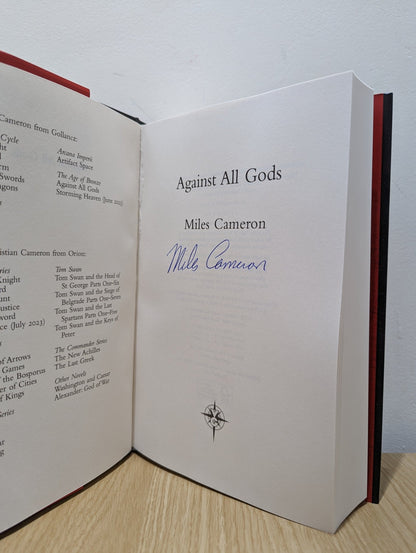 Cameron from Gollancz:
Cycle
ght
Swords
agons
Arcana Imperii
Artifact Space
The Age of Bronze
Against All Gods
Storming Heaven (June 2023)
istian Cameron from Orion:
ries
Knight
unt
ustice
word
ce (July 2023)
of Arrows
Games
of the Bosporus
er of Cities
of Kings
Series
nt
ng
Tom Swan
Tom Swan and the Head of
St George Parts One–Six
Tom Swan and the Siege of
Belgrade Parts One–Seven
Tom Swan and the Last
Spartans Parts One–Five
Tom Swan and the Keys of
Peter
The Commander Series
The New Achilles
The Last Greek
Other Novels
Washington and Caesar
Alexander: God of War
Against All Gods
Miles Cameron
Miles Cameron